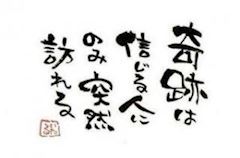 奇跡は
信じる人に
のみ突然
訪れる